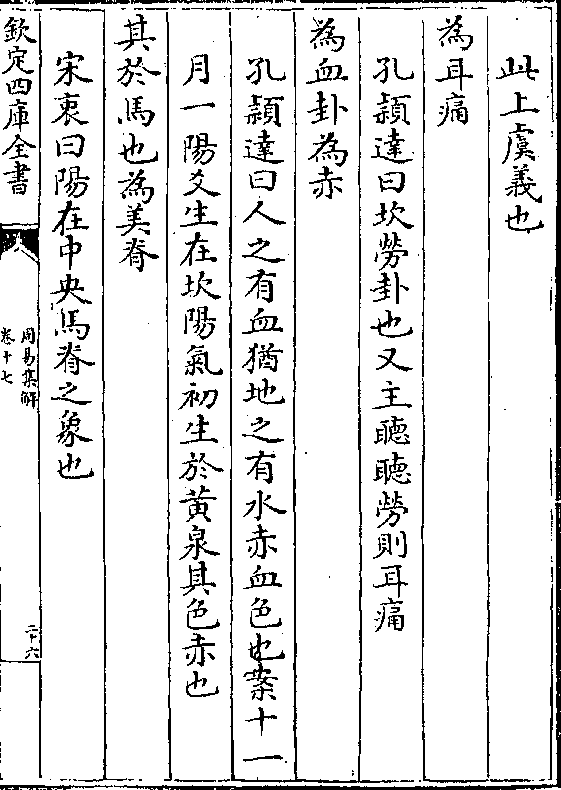 此上虞義也
為耳痛
孔穎達曰坎勞卦也又主聽聽勞則耳痛
為血卦為赤
孔穎達曰人之有血猶地之有水赤血色也案十一
月一陽爻生在坎陽氣初生於黃泉其色赤也
其於馬也為美脊
宋衷曰陽在中央馬脊之象也
欽定四庫全書
周易集解
卷十七
二十六